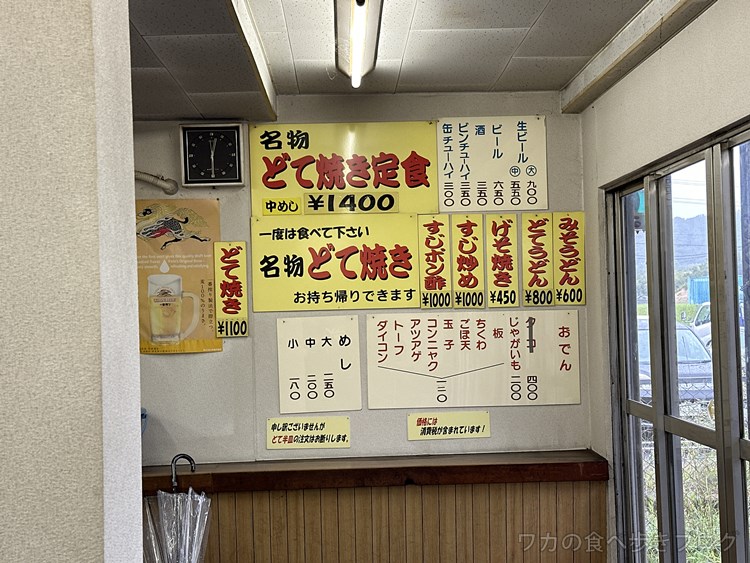 名物
どて焼き定食
中めし ¥1400
生ビール 大 九〇〇
中 五五〇
ビール 六五〇
酒 三五〇
ビンチューハイ 三五〇
缶チューハイ 三〇〇
一度は食べて下さい
名物 どて焼き
お持ち帰りできます
みそうどん ¥600
どてうどん ¥800
げそ焼き ¥450
すじ炒め ¥1000
すじポン酢 ¥1000
どて焼き ¥1100
おでん
タコ 四〇〇
じゃがいも 二〇〇
板
ちくわ
ごぼ天
玉子
コンニャク
アツアゲ
トーフ
ダイコン
一三〇
めし
大 二五〇
中 二〇〇
小 一八〇
申し訳ございませんが
どて半皿の注文はお断りします。
価格には
消費税が含まれています!
ワカの食べ歩きブログ